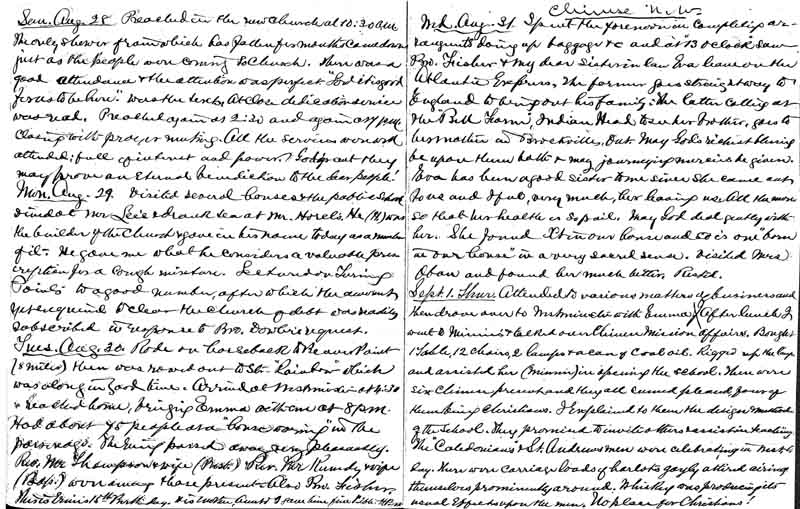 Sun. Aug. 28 Preached in the new church at 10:30 a.m.
The only shower from which has fallen for months came down
just as the people were coming to church. There was a
good attendance & the attention was perfect "Lord it is good
for us to be here." was the text. At close dedication service
was read. Preached again at 2:30 and again at 7 p.m.
closing with prayer meeting. All the services were well
attended; full of interest and power. God grant they
may prove an Eternal benediction to the dear people!
Mon. Aug. 29. Visited several houses & the public School
dined at Mr. & drank tea at Mr. Horel's. He (H) was
the builder of the Church & gave in his name today as a member
of it. He gave me what he considers a valuable pres-
cription for a Cough mixture. Lectured on Turning
Points to a good number, after which the amount
yet required to clear the church of debt was readily
subscribed in response to Bro. request.
Tues. Aug. 30. Rode on horseback to Beaver Point
(8 miles) then was rowed out to Str. Rainbow which
was along in good time. Arrived at Westminster at 4:30
& reached home, bringing Emma with me at 8 p.m.
Had about 40 people as a "house warming" in the
parsonage. The Evening passed away very pleasantly.
Rev. Mr. Thompson & wife (Presb.) & Rev. Mr. Kennedy & wife
(Bap.) were among those present. Also Rev. Fisher.
This is 15th Birth day. His mother, Aunt &
Chinese N. W.
Wed. Aug. 31 Spent the forenoon in completing ar-
rangements doing up baggage &c and at 13 o'clock saw
Bro. Fisher & my dear Sister in law Eva leave on the
Atlantic Express. The former goes straight way to
England to bring out his family: The latter calling at
the "Bell Farm", Indian Head to see her brother, goes to
her mother in Brockville, Ont. May God's richest blessing
be upon them both & may journeying mercies be given.
Eva has been a good sister to me since she came out
I love and I feel, very much, her leaving us. All the more
so that her health is so frail. May God deal gently with
her. She found Xt in our house and so is one "born
in our house" in a very sacred sense. Visited Mrs
and found her much better,
Sept. 1. Thur. Attended to various matters of business and
then drove over to Westminster with Emma. After lunch I
went to Minnie's & talked over Chinese Mission affairs. Bought
1 Table, 12 chairs, 2 lamps & a can of coal oil. Rigged up the lamps
and assisted her (Minnie) in opening the school. There were
six Chinese present and they all seemed pleased, four of
them being Christians. I explained to them the design & method
of the School. They promised to invite others & assist in teaching
The Caledonians & St. Andrews men were celebrating in Westr. to
day. There were carriage loads of harlots gayly attired airing
themselves prominently around. Whiskey was producing its
usual Effects upon the men. No place for Christians!